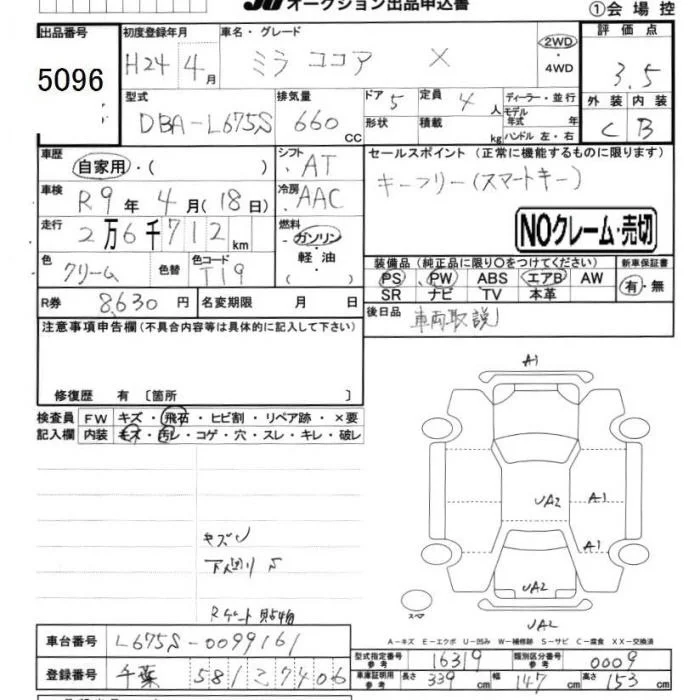 JU オークション出品申込書
①会場控
出品番号
5096
初度登録年月
H24年4月
車名・グレード
ミラ ココア X
2WD
・
4WD
評価点
3.5
外装 内装
C B
型式
DBA-L675S
排気量
660 cc
ドア 5
形状
定員 4 人
積載 kg
ディーラー・並行
モデル年式 年
ハンドル 左・右
車歴
自家用・( )
シフト
AT
セールスポイント(正常に機能するものに限ります)
キーフリー(スマートキー)
車検
R9年4月(18日)
冷房
AAC
走行
2万6千712km
燃料
ガソリン
軽油
( )
NOクレーム・売切
色
クリーム
色替
色コード
T19
装備品(純正品に限り○をつけてください)
PS PW ABS エアB AW
SR ナビ TV 本革
新車保証書
有・無
R券 8,630円
名変期限 月 日
後日品 車両取説
注意事項申告欄(不具合内容等は具体的に記入して下さい)
修復歴 有〔箇所 〕
検査員
記入欄
FW キズ・飛石・ヒビ割・リペア跡・×要
内装 キズ・汚レ・コゲ・穴・スレ・キレ・破レ
A1
UA2
A1
A1
UA2
UA2
スペア
キズ
Rゲート
A-キズ E-エクボ U-凹み W-補修跡 S-サビ C-腐食 XX-交換済
車台番号 L675S-0099161
登録番号 千葉 581 2 7406
型式指定番号
参考
16319
類別区分番号
参考
0009
車庫証明用
参考
長さ 339 cm
幅 147 cm
高さ 153 cm